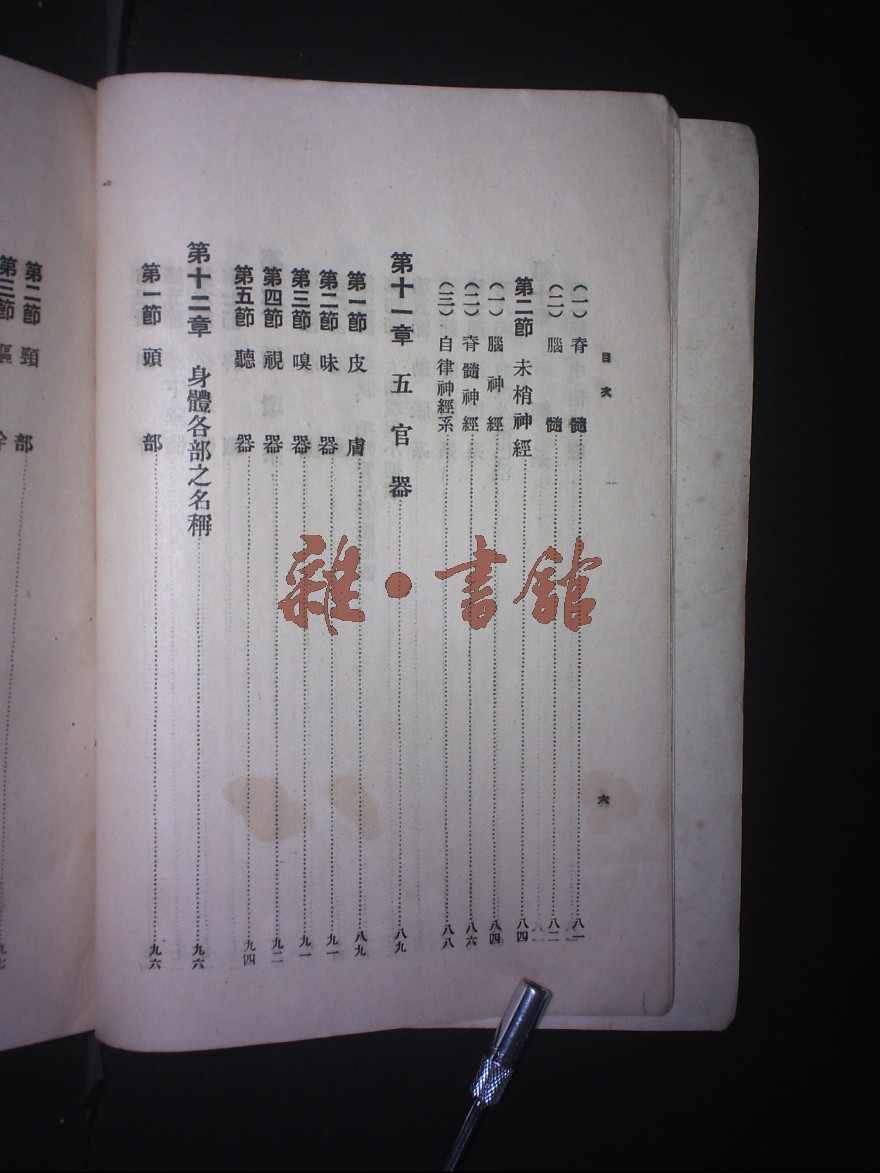 目次
六
(一) 脊髓……八一
(二) 腦髓……八二
第二節 末梢神經……八四
(一) 腦神經……八四
(二) 脊髓神經……八六
(三) 自律神經系……八八
第十一章 五官器……八九
第一節 皮膚……八九
第二節 味器……九一
第三節 嗅器……九一
第四節 視器……九二
第五節 聽器……九四
第十二章 身體各部之名稱……九六
第一節 頭部……九六
第二節 頸部
第三節 軀
雜·書館